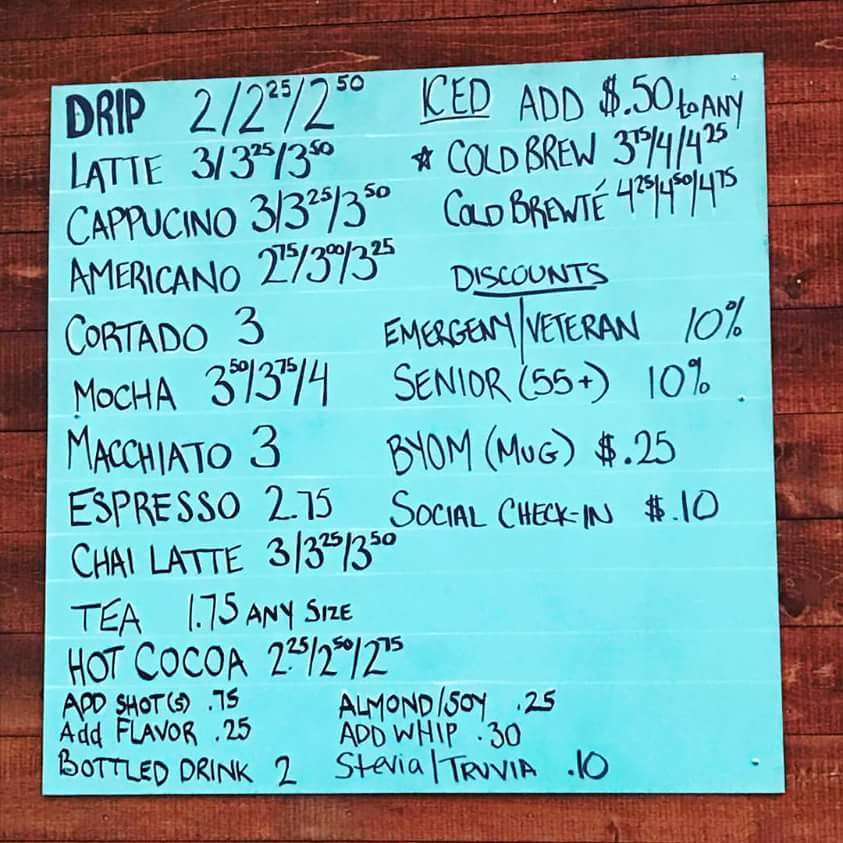 DRIP 2/2.25/2.50
LATTE 3/3.25/3.50
CAPPUCINO 3/3.25/3.50
AMERICANO 2.75/3.00/3.25
CORTADO 3
MOCHA 3.50/3.75/4
MACCHIATO 3
ESPRESSO 2.75
CHAI LATTE 3/3.25/3.50
TEA 1.75 ANY SIZE
HOT COCOA 2.25/2.50/2.75
ADD SHOT(S) .75
Add FLAVOR .25
BOTTLED DRINK 2
ICED ADD $.50 to ANY
☆ COLD BREW 3.75/4/4.25
COLD BREWTÉ 4.25/4.50/4.75
DISCOUNTS
EMERGENY/VETERAN 10%
SENIOR (55+) 10%
BYOM (MUG) $.25
SOCIAL CHECK-IN $.10
ALMOND/SOY .25
ADD WHIP .30
Stevia/TRUVIA .10